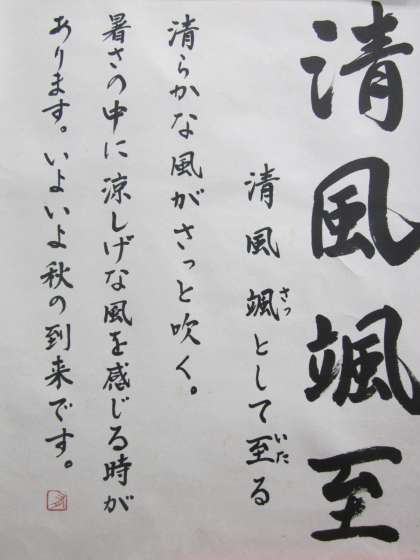 清風颯至
清風颯として至る
さっ
いた
清らかな風がさっと吹く。
暑さの中に涼しげな風を感じる時が
あります。いよいよ秋の到来です。